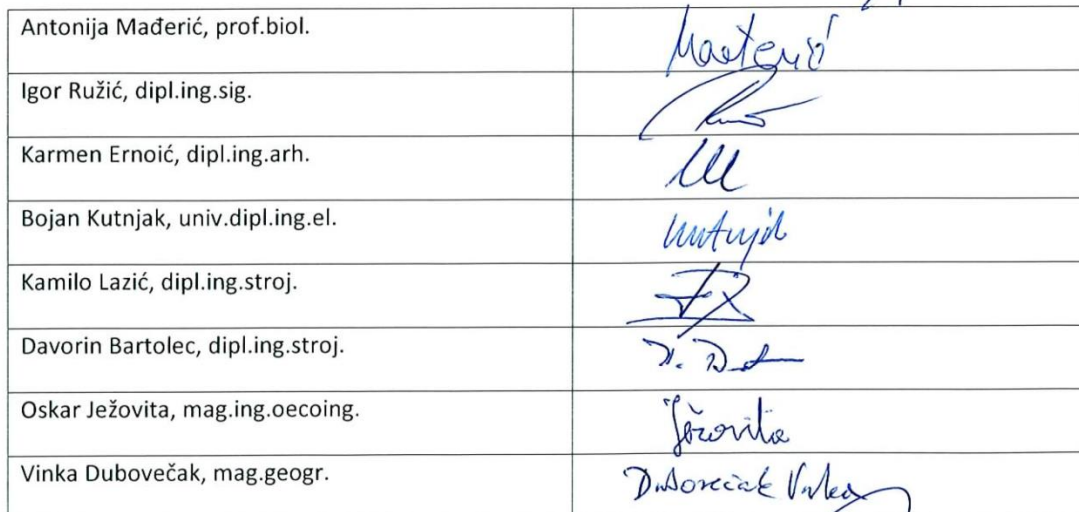 Antonija Mađerić, prof.biol. Mađerić
Igor Ružić, dipl.ing.sig.
Karmen Ernoić, dipl.ing.arh.
Bojan Kutnjak, univ.dipl.ing.el. Kutnjak
Kamilo Lazić, dipl.ing.stroj.
Davorin Bartolec, dipl.ing.stroj.
Oskar Ježovita, mag.ing.oecoing. Ježovita
Vinka Dubovečak, mag.geogr. Dubovečak Vinka